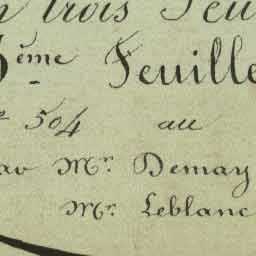 n trois Feu
3ème Feuille
504 au
par Mr. Demay
Mr. Leblanc